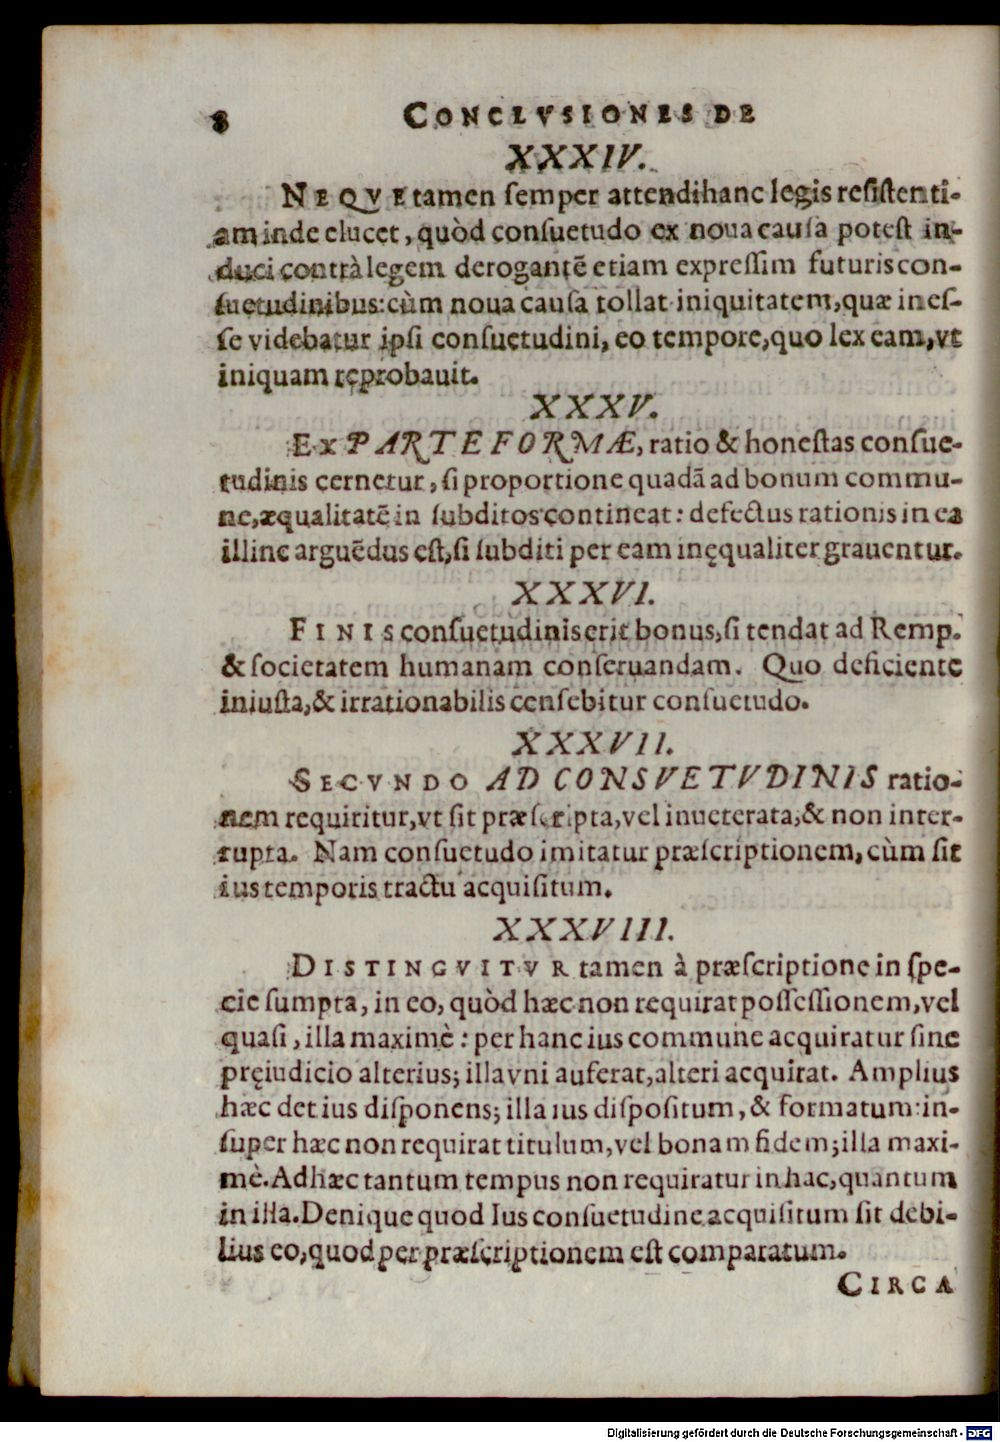 8 CONCLVSIONES DE
XXXIV.
NEQVE tamen ſemper attendi hanc legis reſiſtenti-
am inde elucet, quòd conſuetudo ex noua cauſa poteſt in-
duci contrà legem derogantē etiam expreſſim futuris con-
ſuetudinibus: cùm noua cauſa tollat iniquitatem, quæ ineſ-
ſe videbatur ipſi conſuetudini, eo tempore, quo lex eam, vt
iniquam reprobauit.
XXXV.
EX PARTE FORMÆ, ratio & honeſtas conſue-
tudinis cernetur, ſi proportione quadā ad bonum commu-
ne, æqualitatē in ſubditos contineat: defectus rationis in ea
illinc arguēdus eſt, ſi ſubditi per eam inęqualiter grauentur.
XXXVI.
FINIS conſuetudinis erit bonus, ſi tendat ad Remp.
& ſocietatem humanam conſeruandam. Quo deficiente
iniuſta, & irrationabilis cenſebitur conſuetudo.
XXXVII.
SECVNDO AD CONSVETVDINIS ratio-
nem requiritur, vt ſit præſcripta, vel inueterata, & non inter-
rupta. Nam conſuetudo imitatur præſcriptionem, cùm ſit
ius temporis tractu acquiſitum.
XXXVIII.
DISTINGVITVR tamen à præſcriptione in ſpe-
cie ſumpta, in eo, quòd hæc non requirat poſſeſſionem, vel
quaſi, illa maximè: per hanc ius commune acquiratur ſine
pręiudicio alterius; illa vni auferat, alteri acquirat. Amplius
hæc det ius diſponens; illa ius diſpoſitum, & formatum: in-
ſuper hæc non requirat titulum, vel bonam fidem; illa maxi-
mè. Ad hæc tantum tempus non requiratur in hac, quantum
in illa. Denique quod Ius conſuetudine acquiſitum ſit debi-
lius eo, quod per præſcriptionem eſt comparatum.
CIRCA
Digitalisierung gefördert durch die Deutsche Forschungsgemeinschaft - DFG